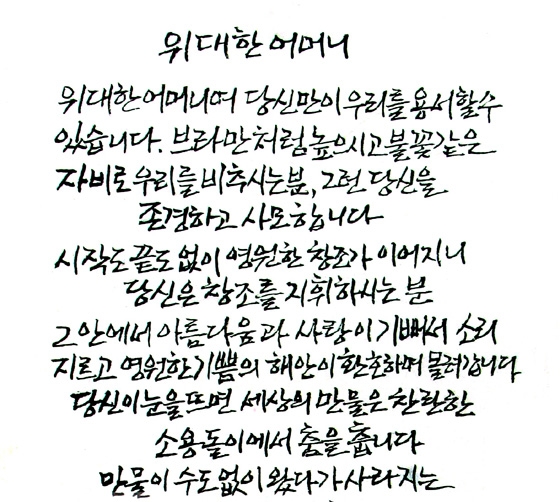 위대한 어머니
위대한 어머니여 당신만이 우리를 용서할 수
있습니다. 브라만처럼 높으시고 불꽃 같은
자비로 우리를 비추시는 분, 그런 당신을
존경하고 사모합니다
시작도 끝도 없이 영원한 창조가 이어지니
당신은 창조를 지휘하시는 분
그 안에서 아름다움과 사랑이 기뻐서 소리
지르고 영원한 기쁨의 해안이 환호하며 몰려갑니다
당신이 눈을 뜨면 세상의 만물은 찬란한
소용돌이에서 춤을 춥니다
만물이 수도 없이 왔다가 사라지는